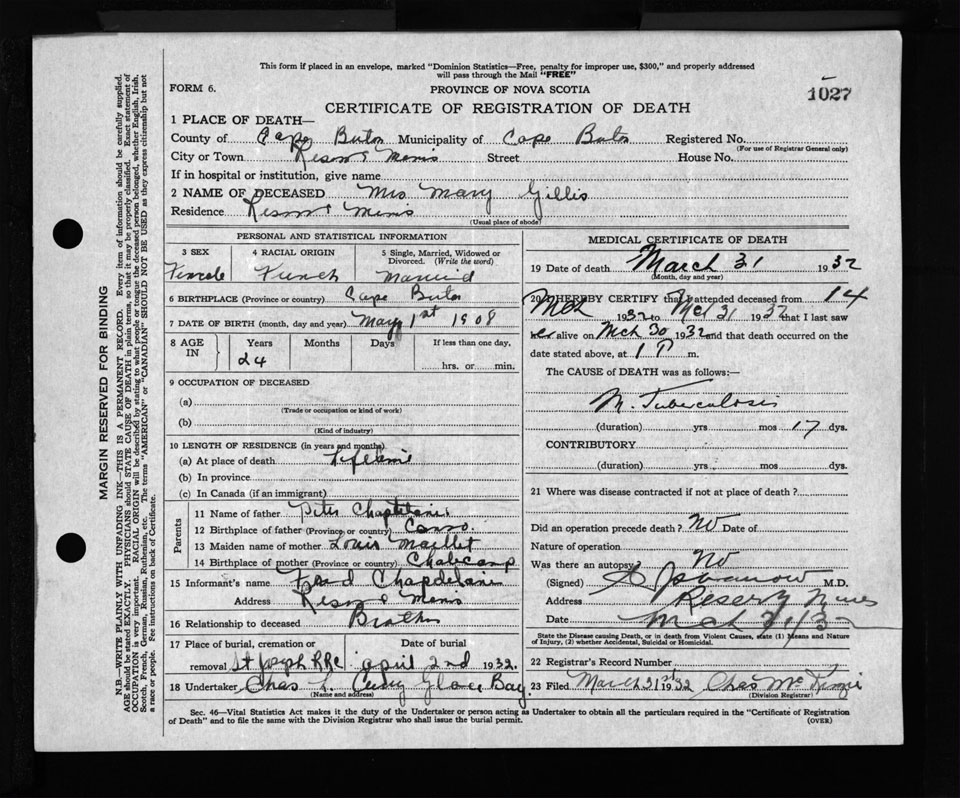 This form if placed in an envelope, marked "Dominion Statistics—Free, penalty for improper use, $300," and properly addressed
will pass through the Mail "FREE"
FORM 6.
PROVINCE OF NOVA SCOTIA
1027
CERTIFICATE OF REGISTRATION OF DEATH
1 PLACE OF DEATH—
County of Cape Breton Municipality of Cape Breton Registered No.
(For use of Registrar General only)
City or Town Reserve Mines Street House No.
If in hospital or institution, give name
2 NAME OF DECEASED Mrs Mary Gillis
Residence Reserve Mines
(Usual place of abode)
PERSONAL AND STATISTICAL INFORMATION
3 SEX
Female
4 RACIAL ORIGIN
French
5 Single, Married, Widowed or
Divorced. (Write the word)
Married
6 BIRTHPLACE (Province or country) Cape Breton
7 DATE OF BIRTH (month, day and year) May 1st 1908
8 AGE
IN
Years
24
Months
Days
If less than one day,
hrs. or min.
9 OCCUPATION OF DECEASED
(a)
(Trade or occupation or kind of work)
(b)
(Kind of industry)
10 LENGTH OF RESIDENCE (in years and months)
(a) At place of death Lifetime
(b) In province
(c) In Canada (if an immigrant)
Parents
11 Name of father Peter
12 Birthplace of father (Province or country) Canso
13 Maiden name of mother Louis Maillet
14 Birthplace of mother (Province or country) Cheticamp
15 Informant's name Chapdelaine
Address Reserve Mines
16 Relationship to deceased Brother
17 Place of burial, cremation or
removal St Joseph
Date of burial
April 2nd 1932.
18 Undertaker Chas L. Curry Glace Bay
(Name and address)
MEDICAL CERTIFICATE OF DEATH
19 Date of death March 31 1932
(Month, day and year)
20 I HEREBY CERTIFY that I attended deceased from 14
Mch 1932 to Mch 31 1932 that I last saw
her alive on Mch 30 1932 and that death occurred on the
date stated above, at 1 P m.
The CAUSE of DEATH was as follows:—
M. Tuberculosis
(duration) yrs mos 17 dys.
CONTRIBUTORY
(duration) yrs. mos. dys.
21 Where was disease contracted if not at place of death?
Did an operation precede death? No Date of
Nature of operation
Was there an autopsy? No
(Signed) M.D.
Address Reserve Mines
Date Mch 31/32
State the Disease causing Death, or in death from Violent Causes, state (1) Means and Nature
of Injury, (2) whether Accidental, Suicidal or Homicidal.
22 Registrar's Record Number
23 Filed March 31st 1932 Chas
(Division Registrar)
Sec. 46—Vital Statistics Act makes it the duty of the Undertaker or person acting as Undertaker to obtain all the particulars required in the "Certificate of Registration
of Death" and to file the same with the Division Registrar who shall issue the burial permit.
(OVER)
MARGIN RESERVED FOR BINDING
N.B.—WRITE PLAINLY WITH UNFADING INK—THIS IS A PERMANENT RECORD. Every item of information should be carefully supplied.
AGE should be stated EXACTLY. PHYSICIANS should STATE CAUSE OF DEATH in plain terms, so that it may be properly classified. Exact statement of
OCCUPATION is very important. RACIAL ORIGIN will be described by stating to what people or tongue the deceased person belonged, whether English, Irish,
Scotch, French, German, Russian, Ruthenian, etc. The terms "AMERICAN" or "CANADIAN" SHOULD NOT BE USED as they express citizenship but not
a race or people. See instructions on back of Certificate.